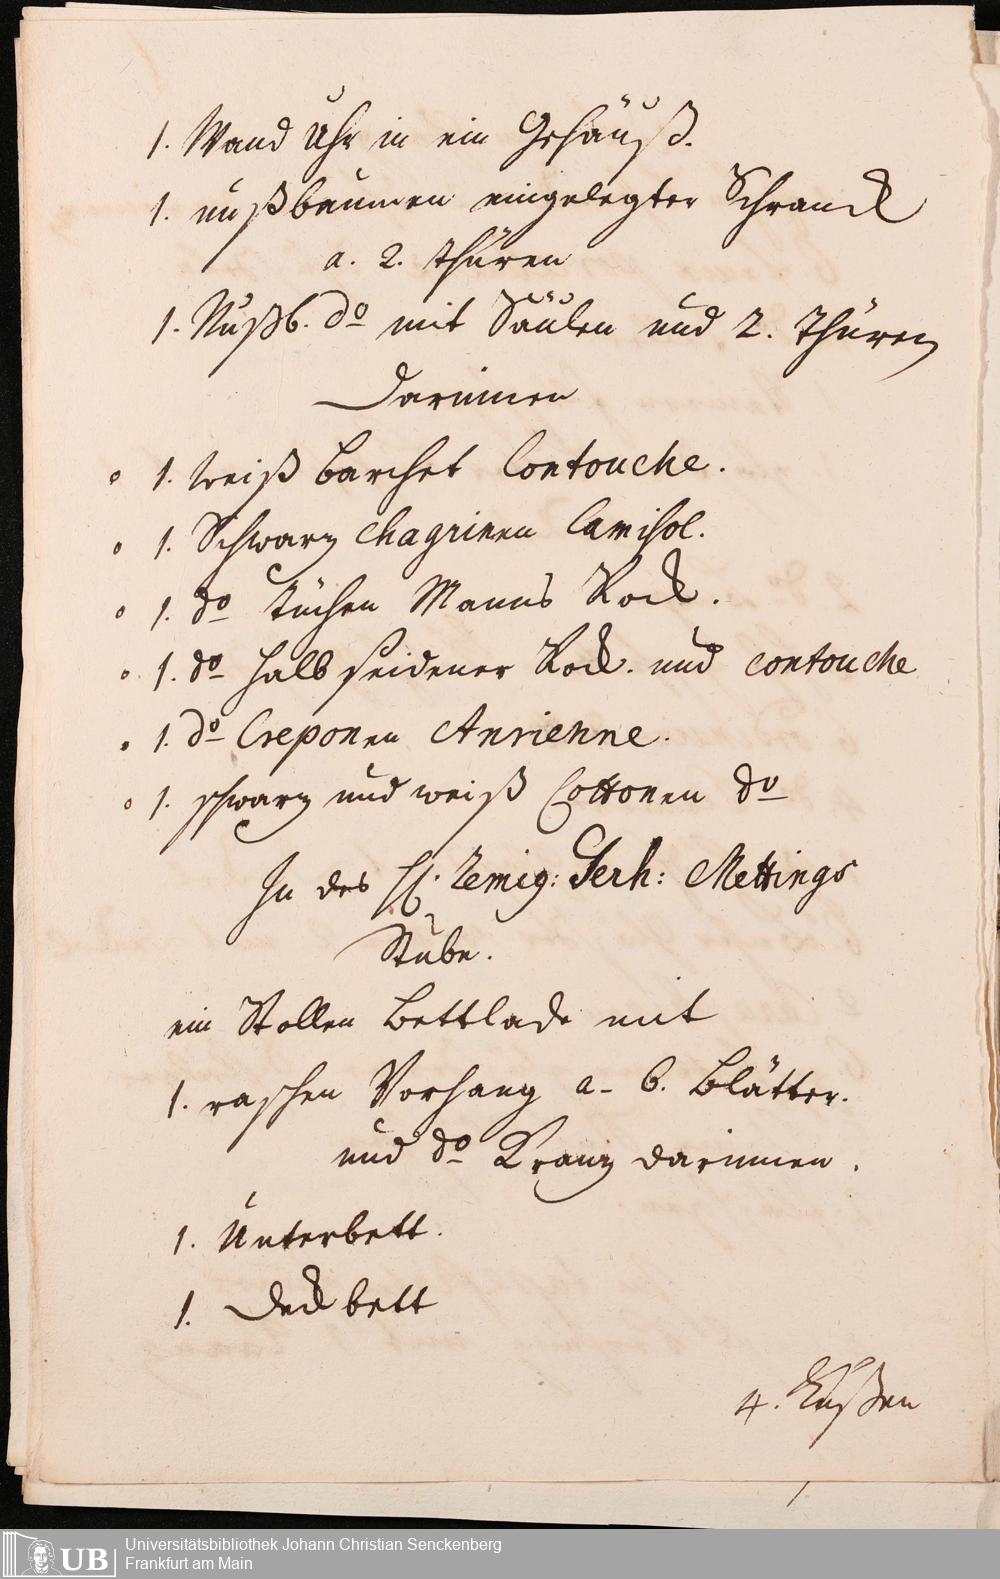 1. Wand Uhr in ein Gehäuß.
1. nußbaumen eingelegter Schranck
a. 2. Thüren
1. Nußb. do mit Säulen und 2. Thüren
Darinnen
1. weiß barchet Contouche.
1. Schwarz chagrinen Camisol.
1. do tüchen Manns Rock.
1. do halb seidener Rock. und contouche
1. do Creponen Anrienne.
1. schwarz und weiß Cottonen do
In des H. Remig: Serh: Mettings
Stube.
ein Stollen Bettlade mit
1. raschen Vorhang a- 6. Blätter.
und do Kranz darinnen.
1. Unterbett.
1. Deckbett
4. Küßen
UB Universitätsbibliothek Johann Christian Senckenberg
Frankfurt am Main